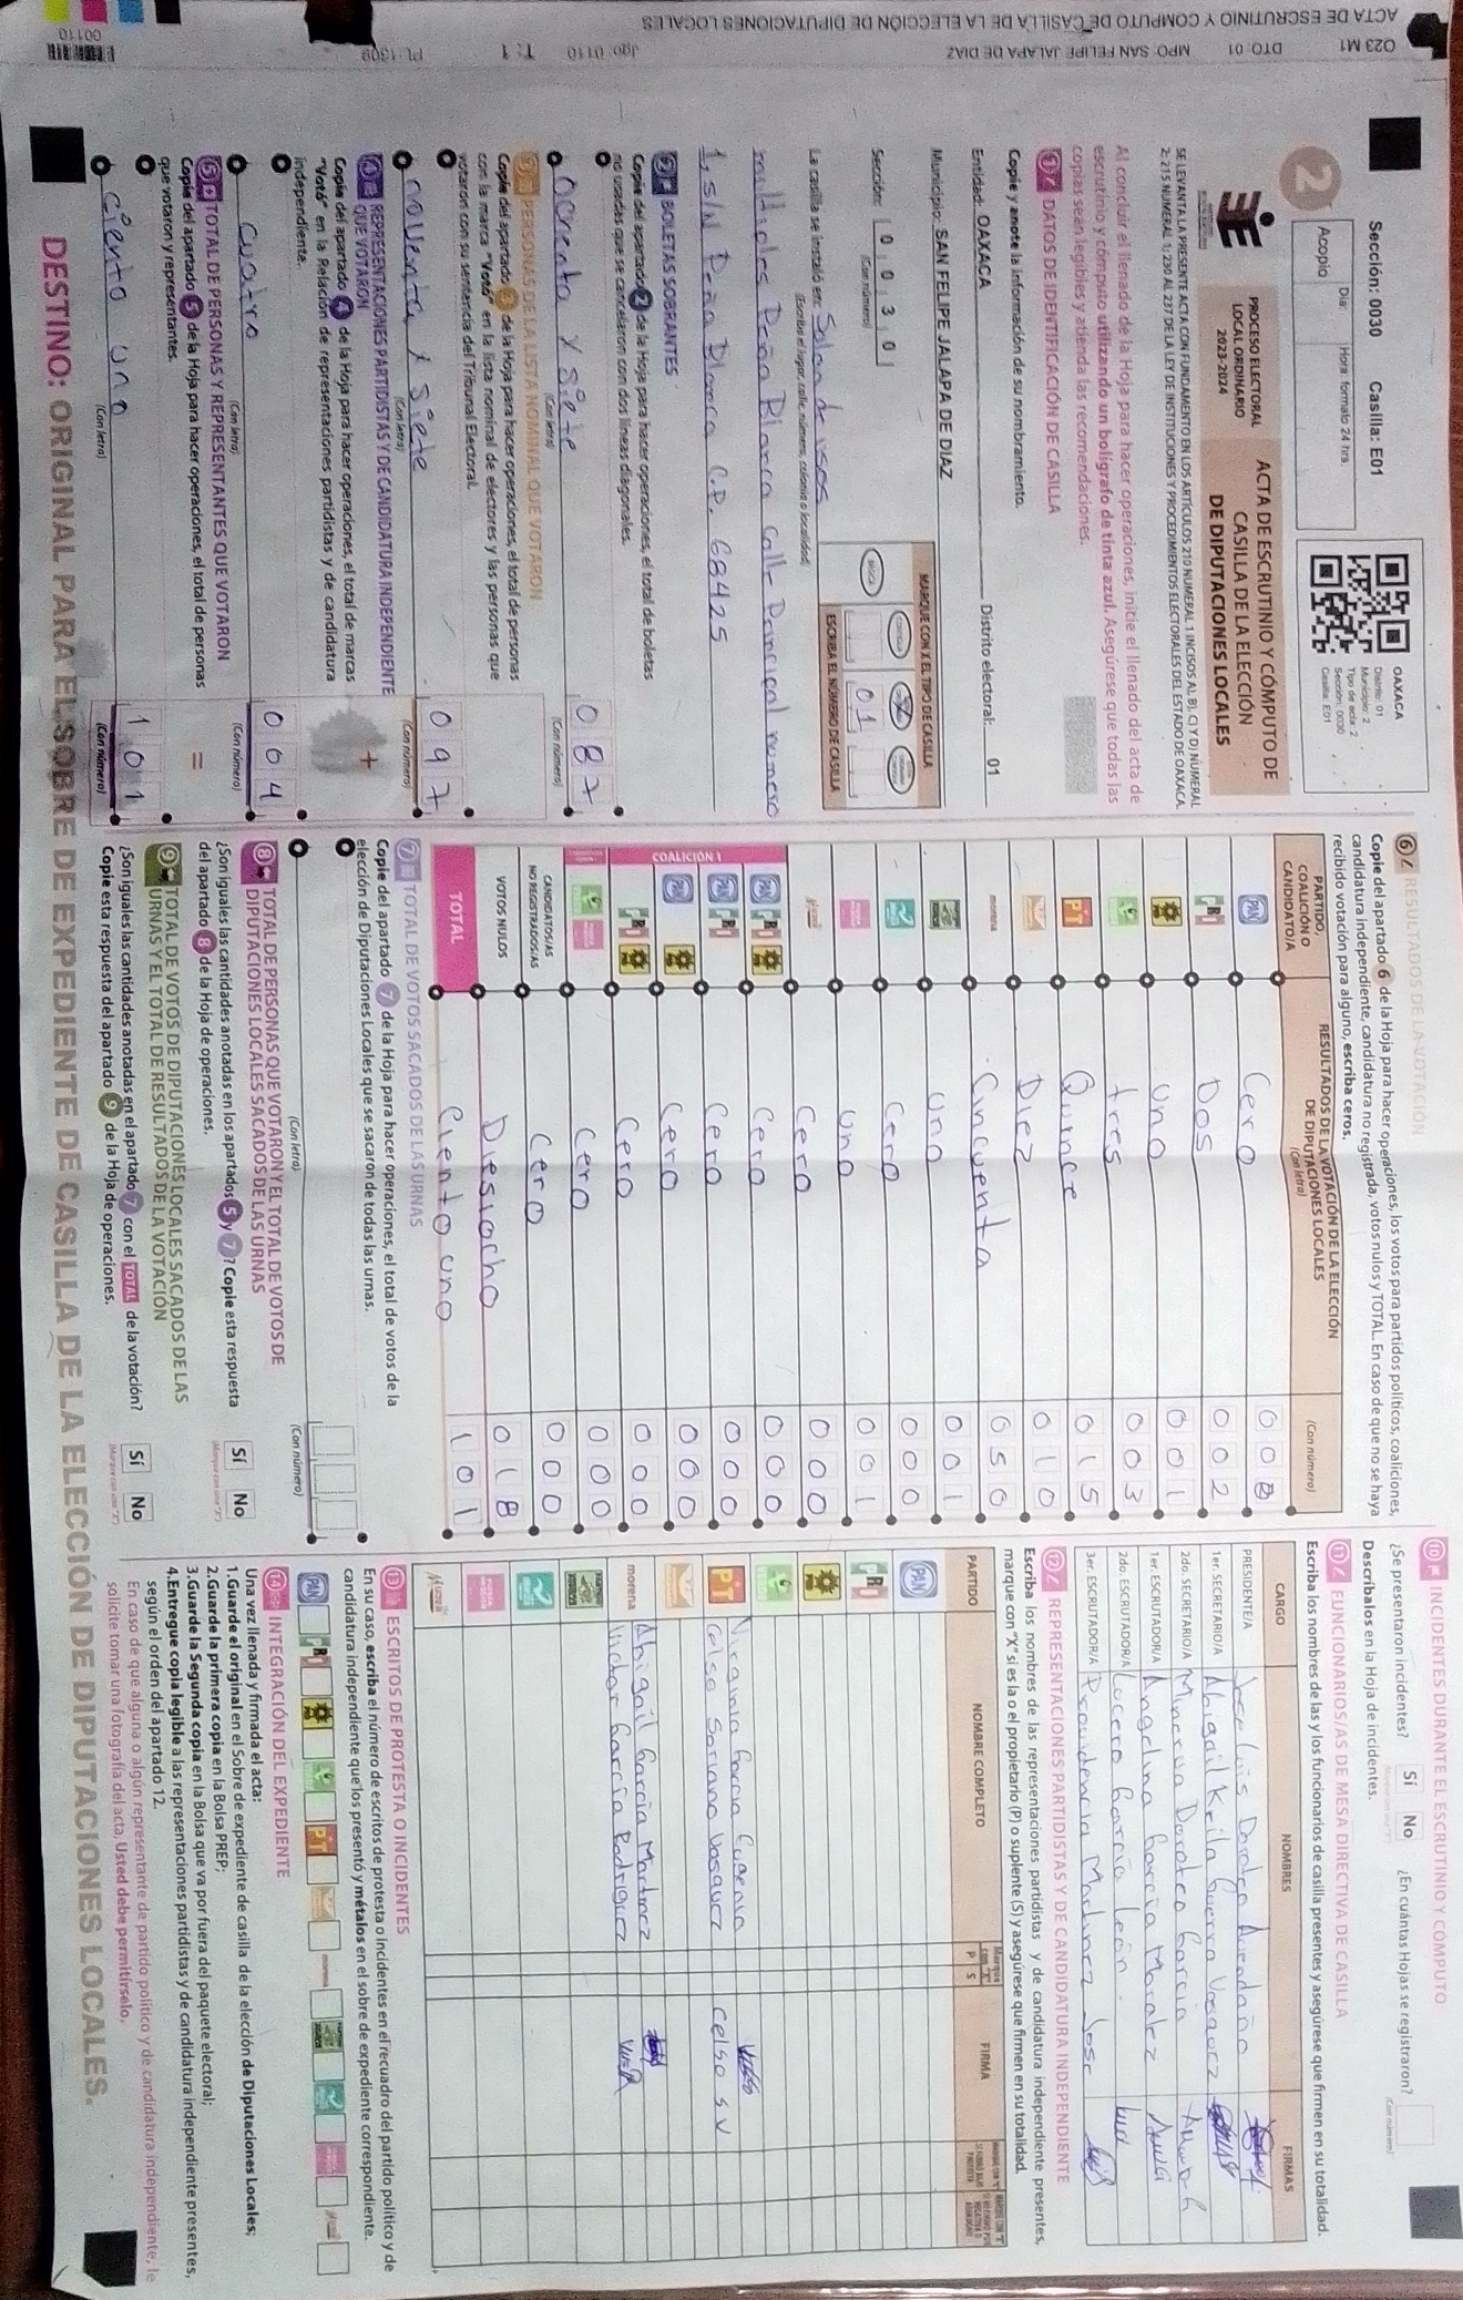 Sección: 0030 Casilla: E01
Día: Hora: formato 24 hrs.
Acopio
2
OAXACA
Distrito: 01
Municipio: 2
Tipo de acta: 2
Sección: 0030
Casilla: E01
PROCESO ELECTORAL
LOCAL ORDINARIO
2023-2024
ACTA DE ESCRUTINIO Y CÓMPUTO DE
CASILLA DE LA ELECCIÓN
DE DIPUTACIONES LOCALES
SE LEVANTA LA PRESENTE ACTA CON FUNDAMENTO EN LOS ARTÍCULOS 210 NUMERAL 1 INCISOS A), B), C) Y D) NUMERAL
2; 215 NUMERAL 1; 230 AL 237 DE LA LEY DE INSTITUCIONES Y PROCEDIMIENTOS ELECTORALES DEL ESTADO DE OAXACA.
Al concluir el llenado de la Hoja para hacer operaciones, inicie el llenado del acta de
escrutinio y cómputo utilizando un bolígrafo de tinta azul. Asegúrese que todas las
copias sean legibles y atienda las recomendaciones.
1 DATOS DE IDENTIFICACIÓN DE CASILLA
Copie y anote la información de su nombramiento.
Entidad: OAXACA Distrito electoral: 01
Municipio: SAN FELIPE JALAPA DE DIAZ
Sección: 0 0 3 0
(Con número)
MARQUE CON X EL TIPO DE CASILLA
BÁSICA
01
ESCRIBA EL NÚMERO DE CASILLA
La casilla se instaló en: Salon de usos
(Escriba el lugar, calle, número, colonia o localidad)
multiples Peña Blanca calle Principal numero
1, S/N Peña Blanca C.P. 68425
2 BOLETAS SOBRANTES
Copie del apartado 2 de la Hoja para hacer operaciones, el total de boletas
no usadas que se cancelaron con dos líneas diagonales.
Ochenta y siete 0 8 7
(Con letra) (Con número)
3 PERSONAS DE LA LISTA NOMINAL QUE VOTARON
Copie del apartado 3 de la Hoja para hacer operaciones, el total de personas
con la marca "Votó" en la lista nominal de electores y las personas que
votaron con su sentencia del Tribunal Electoral.
noventa y siete 0 9 7
(Con letra) (Con número)
4 REPRESENTACIONES PARTIDISTAS Y DE CANDIDATURA INDEPENDIENTE
QUE VOTARON
+
Copie del apartado 4 de la Hoja para hacer operaciones, el total de marcas
"Votó" en la Relación de representaciones partidistas y de candidatura
independiente.
cuatro 0 0 4
(Con letra) (Con número)
5 TOTAL DE PERSONAS Y REPRESENTANTES QUE VOTARON
=
Copie del apartado 5 de la Hoja para hacer operaciones, el total de personas
que votaron y representantes.
Ciento uno 1 0 1
(Con letra) (Con número)
6 RESULTADOS DE LA VOTACIÓN
Copie del apartado 6 de la Hoja para hacer operaciones, los votos para partidos políticos, coaliciones,
candidatura independiente, candidatura no registrada, votos nulos y TOTAL. En caso de que no se haya
recibido votación para alguno, escriba ceros.
PARTIDO,
COALICIÓN O
CANDIDATO/A
RESULTADOS DE LA VOTACIÓN DE LA ELECCIÓN
DE DIPUTACIONES LOCALES
(Con letra) (Con número)
PAN Cero 0 0 0
PRI Dos 0 0 2
Uno 0 0 1
tres 0 0 3
PT Quince 0 1 5
Diez 0 1 0
morena Cincuenta 0 5 0
Uno 0 0 1
Cero 0 0 0
Uno 0 0 1
Cero 0 0 0
COALICIÓN 1
PAN PRI Cero 0 0 0
PAN PRI Cero 0 0 0
PAN Cero 0 0 0
PRI Cero 0 0 0
Cero 0 0 0
CANDIDATOS/AS
NO REGISTRADOS/AS Cero 0 0 0
VOTOS NULOS Diesiocho 0 1 8
TOTAL Ciento uno 1 0 1
7 TOTAL DE VOTOS SACADOS DE LAS URNAS
Copie del apartado 7 de la Hoja para hacer operaciones, el total de votos de la
elección de Diputaciones Locales que se sacaron de todas las urnas.
(Con letra) (Con número)
8 TOTAL DE PERSONAS QUE VOTARON Y EL TOTAL DE VOTOS DE
DIPUTACIONES LOCALES SACADOS DE LAS URNAS
¿Son iguales las cantidades anotadas en los apartados 5 y 7? Copie esta respuesta
del apartado 8 de la Hoja de operaciones.
Sí No
9 TOTAL DE VOTOS DE DIPUTACIONES LOCALES SACADOS DE LAS
URNAS Y EL TOTAL DE RESULTADOS DE LA VOTACIÓN
¿Son iguales las cantidades anotadas en el apartado 7 con el TOTAL de la votación?
Copie esta respuesta del apartado 9 de la Hoja de operaciones.
Sí No
10 INCIDENTES DURANTE EL ESCRUTINIO Y CÓMPUTO
¿Se presentaron incidentes? Sí No ¿En cuántas Hojas se registraron?
(Con número)
Descríbalos en la Hoja de incidentes.
11 FUNCIONARIOS/AS DE MESA DIRECTIVA DE CASILLA
Escriba los nombres de las y los funcionarios de casilla presentes y asegúrese que firmen en su totalidad.
CARGO NOMBRES FIRMAS
PRESIDENTE/A Jose Luis Doroteo Avendaño
1er. SECRETARIO/A Abigail Keila Guerra Vasquez
2do. SECRETARIO/A Minerva Doroteo Garcia
1er. ESCRUTADOR/A Angelina Garcia Morales
2do. ESCRUTADOR/A Lucero Garcia León
3er. ESCRUTADOR/A Providencia Martinez Jose
12 REPRESENTACIONES PARTIDISTAS Y DE CANDIDATURA INDEPENDIENTE
Escriba los nombres de las representaciones partidistas y de candidatura independiente presentes,
marque con "X" si es la o el propietario (P) o suplente (S) y asegúrese que firmen en su totalidad.
PARTIDO NOMBRE COMPLETO P S FIRMA
PAN
PRI
Virginia Garcia Eugenia
PT Celso Soriano Vasquez Celso S V
morena Abigail Garcia Martinez
Victor Garcia Rodriguez
13 ESCRITOS DE PROTESTA O INCIDENTES
En su caso, escriba el número de escritos de protesta o incidentes en el recuadro del partido político y de
candidatura independiente que los presentó y métalos en el sobre de expediente correspondiente.
PAN PRI PT morena
14 INTEGRACIÓN DEL EXPEDIENTE
Una vez llenada y firmada el acta:
1.Guarde el original en el Sobre de expediente de casilla de la elección de Diputaciones Locales;
2.Guarde la primera copia en la Bolsa PREP;
3.Guarde la Segunda copia en la Bolsa que va por fuera del paquete electoral;
4.Entregue copia legible a las representaciones partidistas y de candidatura independiente presentes,
según el orden del apartado 12.
En caso de que alguna o algún representante de partido político y de candidatura independiente, le
solicite tomar una fotografía del acta, Usted debe permitírselo.
DESTINO: ORIGINAL PARA EL SOBRE DE EXPEDIENTE DE CASILLA DE LA ELECCIÓN DE DIPUTACIONES LOCALES.
O23 M1 DTO: 01 MPO: SAN FELIPE JALAPA DE DIAZ Jgo: 0110 T: 1 PL: 1309
ACTA DE ESCRUTINIO Y COMPUTO DE CASILLA DE LA ELECCIÓN DE DIPUTACIONES LOCALES
00110